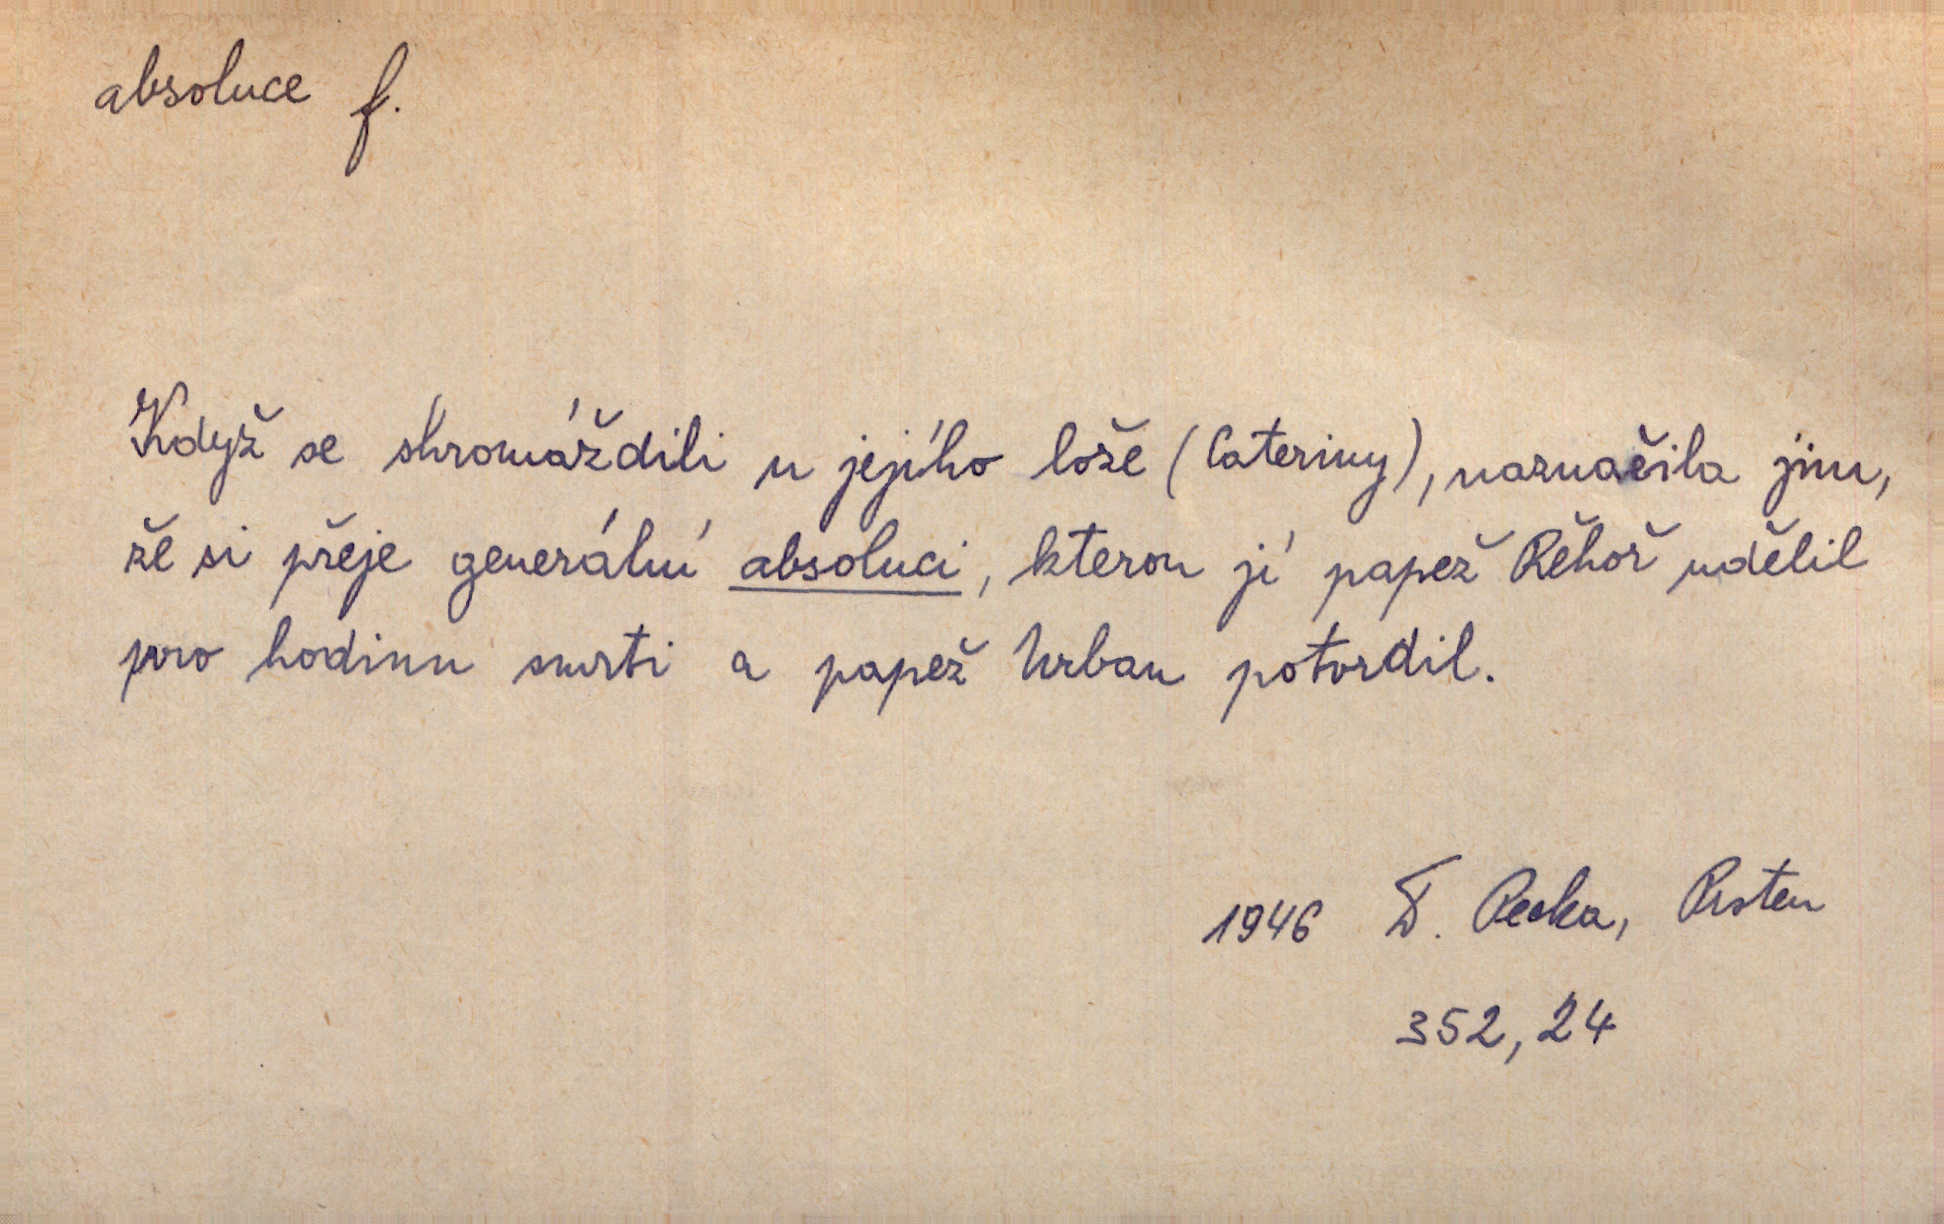 absoluce f.
Když se shromáždili u jejího lože (Cateriny), naznačila jim,
že si přeje generální absoluci, kterou jí papež Řehoř udělil
pro hodinu smrti a papež Urban potvrdil.
1946 D. Pecka, Prsten
352, 24